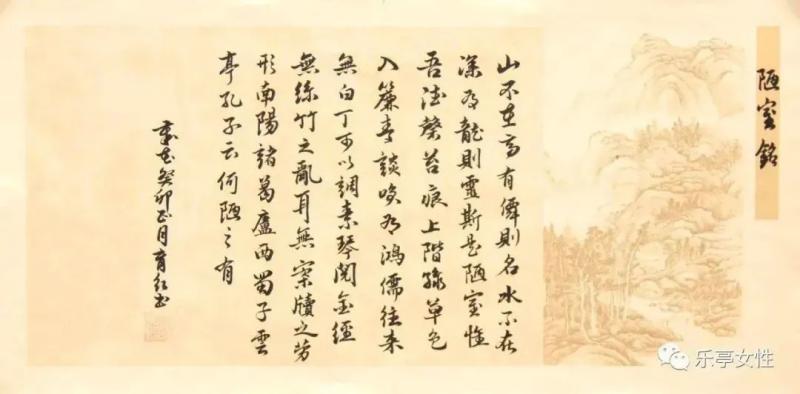 陋室銘
山不在高有僊則名水不在
深有龍則靈斯是陋室惟
吾德馨苔痕上階綠草色
入簾青談咲有鴻儒往来
無白丁可以調素琴閱金經
無絲竹之亂耳無案牘之勞
形南陽諸葛廬西蜀子雲
亭孔子云何陋之有
歲在癸卯正月育红书
乐亭女性